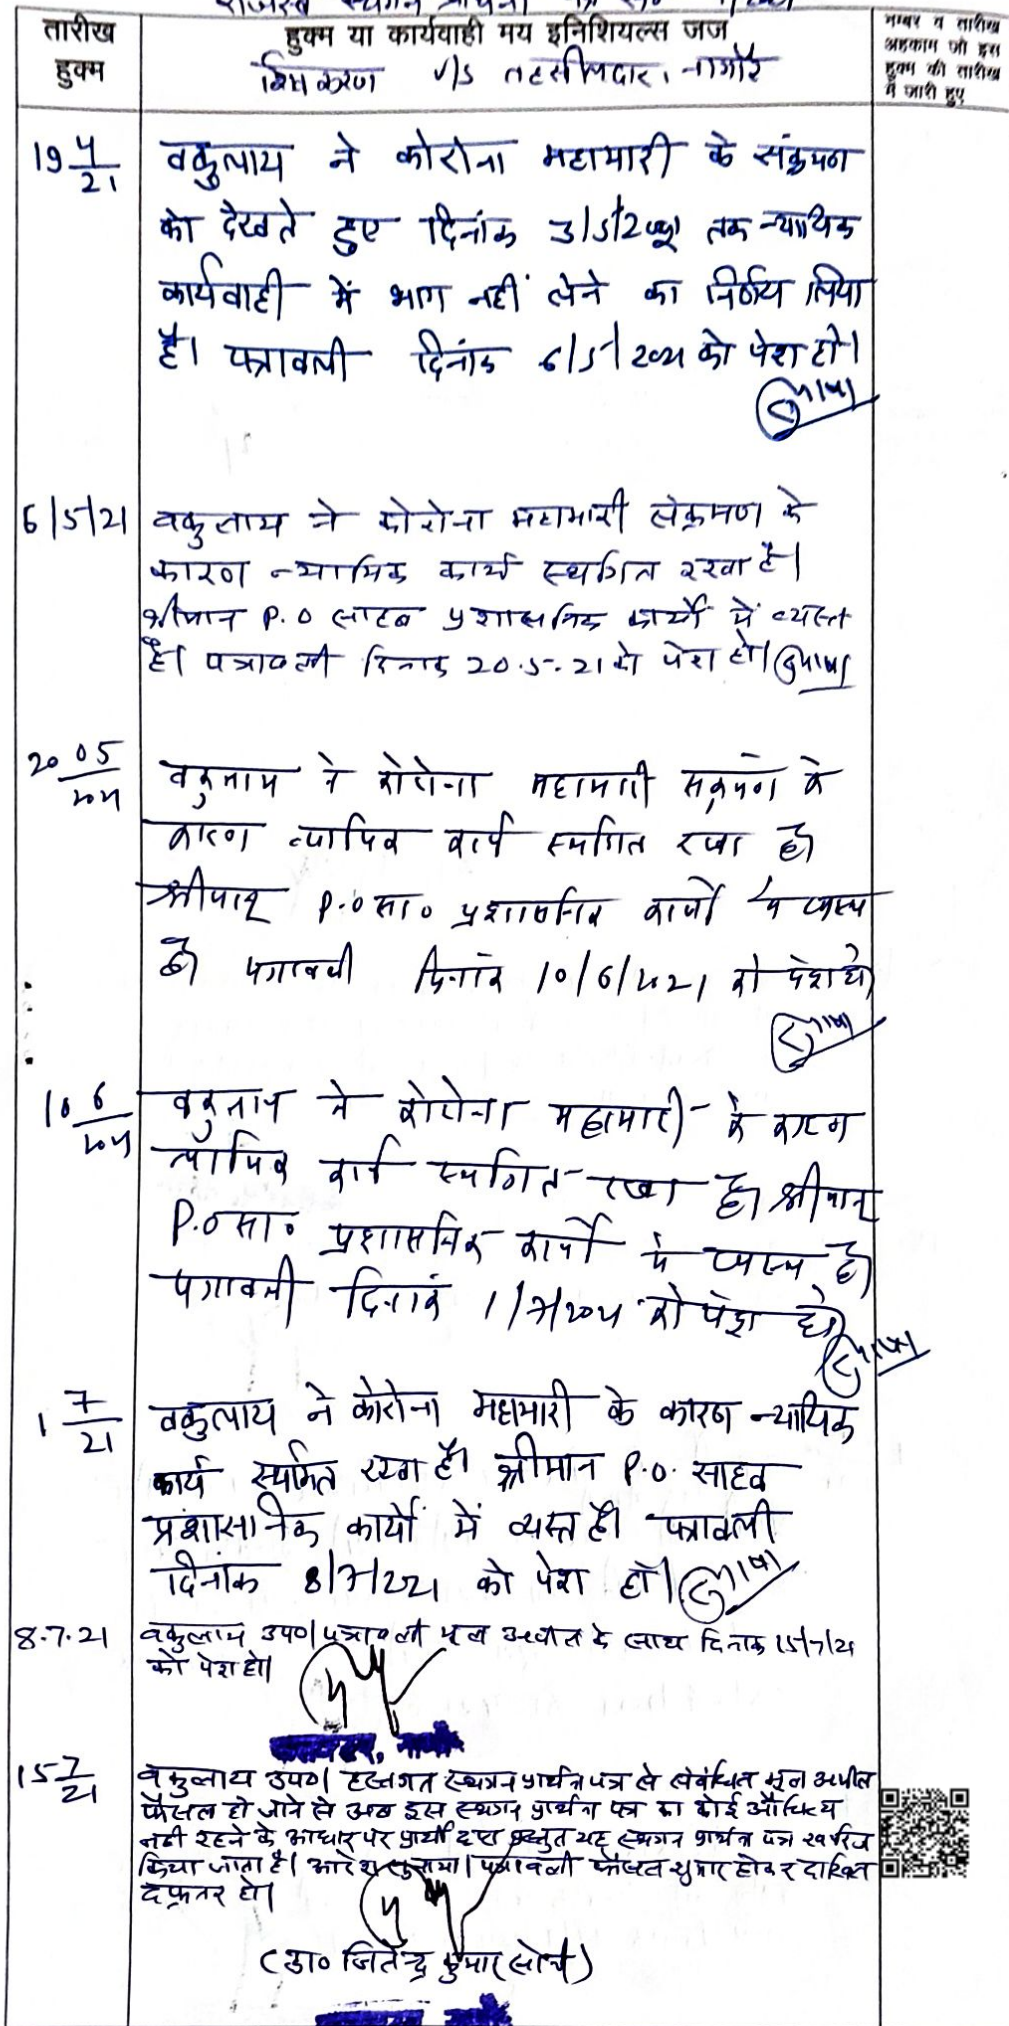 राजस्व स्थगन प्रार्थना पत्र
तारीख हुक्म
हुक्म या कार्यवाही मय इनिशियल्स जज
नम्बर व तारीख अहकाम जो इस हुक्म की तारीख में जारी हुए
V/S तहसीलदार, नागौर
19 4/21 वकुलाय ने कोरोना महामारी के संक्रमण
को देखते हुए दिनांक 3/5/2021 तक न्यायिक
कार्यवाही में भाग नहीं लेने का निर्णय लिया
है। पत्रावली दिनांक 6/5/2021 को पेश हो।
6/5/21 वकुलाय ने कोरोना महामारी संक्रमण के
कारण न्यायिक कार्य स्थगित रखा है।
श्रीमान P.O साहब प्रशासनिक कार्यो में व्यस्त
है। पत्रावली दिनांक 20.5.21 को पेश हो।
20 05/2021 वकुलाय ने कोरोना महामारी संक्रमण के
कारण न्यायिक कार्य स्थगित रखा है।
श्रीमान् P.O सा० प्रशासनिक कार्यो में व्यस्त
है। पत्रावली दिनांक 10/6/2021 को पेश हो।
10 6/2021 वकुलाय ने कोरोना महामारी के कारण
न्यायिक कार्य स्थगित रखा है। श्रीमान्
P.O सा० प्रशासनिक कार्यो में व्यस्त है।
पत्रावली दिनांक 1/7/2021 को पेश हो।
1 7/21 वकुलाय ने कोरोना महामारी के कारण न्यायिक
कार्य स्थगित रखा है। श्रीमान P.O. साहब
प्रशासनिक कार्यो में व्यस्त है। पत्रावली
दिनांक 8/7/2021 को पेश हो।
8.7.21 वकुलाय उप०। पत्रावली मूल अपील के साथ दिनांक 15/7/21
को पेश हो।
15 7/21 वकुलाय उप०। हस्तगत स्थगन प्रार्थना पत्र से संबंधित मूल अपील
फैसल हो जाने से अब इस स्थगन प्रार्थना पत्र का कोई औचित्य
नही रहने के आधार पर प्रार्थी द्वारा प्रस्तुत यह स्थगन प्रार्थना पत्र खारिज
किया जाता है। आदेश सुनाया। पत्रावली फैसल शुमार होकर दाखिल
दफ्तर हो।
(डा० जितेन्द्र कुमार सोनी)